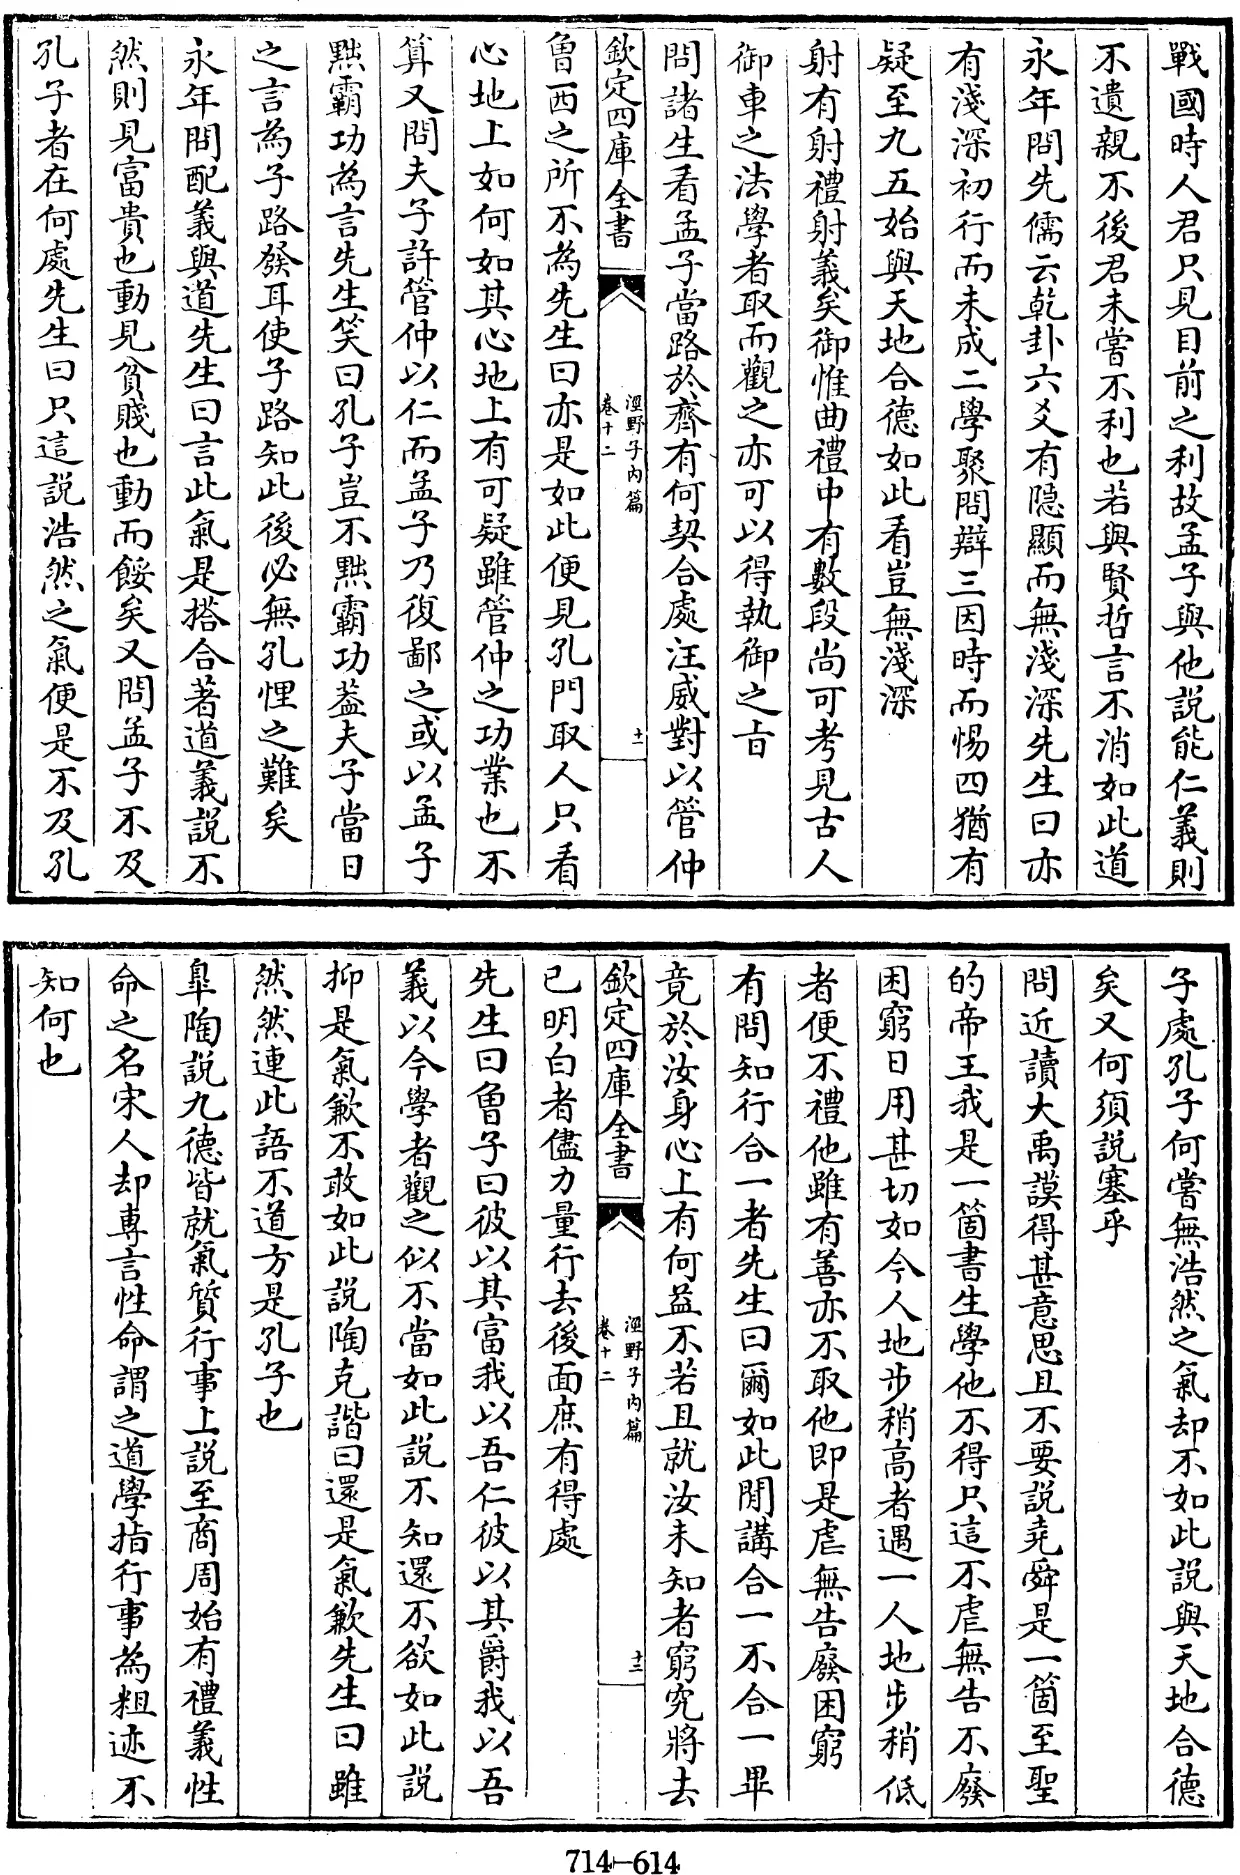 戰國時人君只見目前之利故孟子與他説能仁義則
不遺親不後君未嘗不利也若與賢哲言不消如此道
永年問先儒云乾卦六爻有隠顯而無淺深先生曰亦
有淺深初行而未成二學聚問辯三因時而惕四猶有
疑至九五始與天地合德如此看豈無淺深
射有射禮射義矣御惟曲禮中有數段尚可考見古人
御車之法學者取而觀之亦可以得執御之㫖
問諸生看孟子當路於齊有何契合處汪威對以管仲
欽定四庫全書
涇野子内篇
卷十二
十一
魯西之所不為先生曰亦是如此便見孔門取人只看
心地上如何如其心地上有可疑雖管仲之功業也不
算又問夫子許管仲以仁而孟子乃復鄙之或以孟子
黙霸功為言先生笑曰孔子豈不黙霸功葢夫子當日
之言為子路發耳使子路知此後必無孔悝之難矣
永年問配義與道先生曰言此氣是搭合著道義説不
然則見富貴也動見貧賤也動而餒矣又問孟子不及
孔子者在何處先生曰只這説浩然之氣便是不及孔
子處孔子何嘗無浩然之氣却不如此説與天地合德
矣又何須説塞乎
問近讀大禹謨得甚意思且不要説堯舜是一箇至聖
的帝王我是一箇書生學他不得只這不虐無告不廢
困窮日用甚切如今人地歩稍高者遇一人地歩稍低
者便不禮他雖有善亦不取他即是虐無告廢困窮
有問知行合一者先生曰爾如此閒講合一不合一畢
竟於汝身心上有何益不若且就汝未知者窮究將去
欽定四庫全書
涇野子内篇
卷十二
十二
已明白者儘力量行去後面庶有得處
先生曰魯子曰彼以其富我以吾仁彼以其爵我以吾
義以今學者觀之似不當如此説不知還不欲如此説
抑是氣歉不敢如此説陶克諧曰還是氣歉先生曰雖
然然連此語不道方是孔子也
臯陶説九德皆就氣質行事上説至商周始有禮義性
命之名宋人却専言性命謂之道學指行事為粗迹不
知何也
714-614